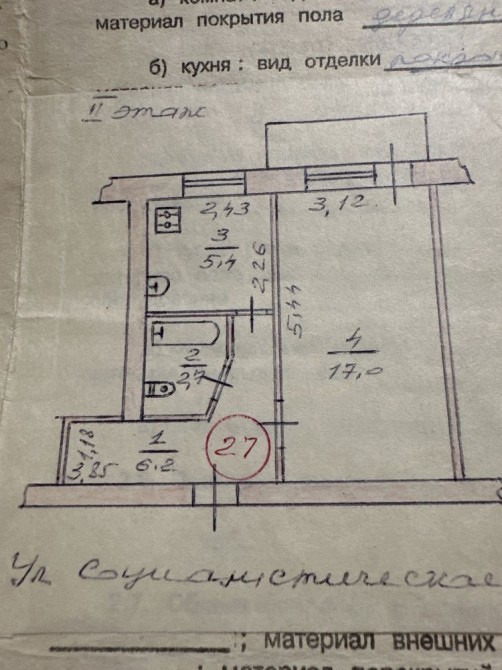 материал покрытия пола
б) кухня : вид отделки
II этаж
2,43
3,12
3
5,4
2,26
5,44
4
17,0
2
2,7
1,18
1
6.2
3,85
27
Ул Социалистическая
; материал внешних